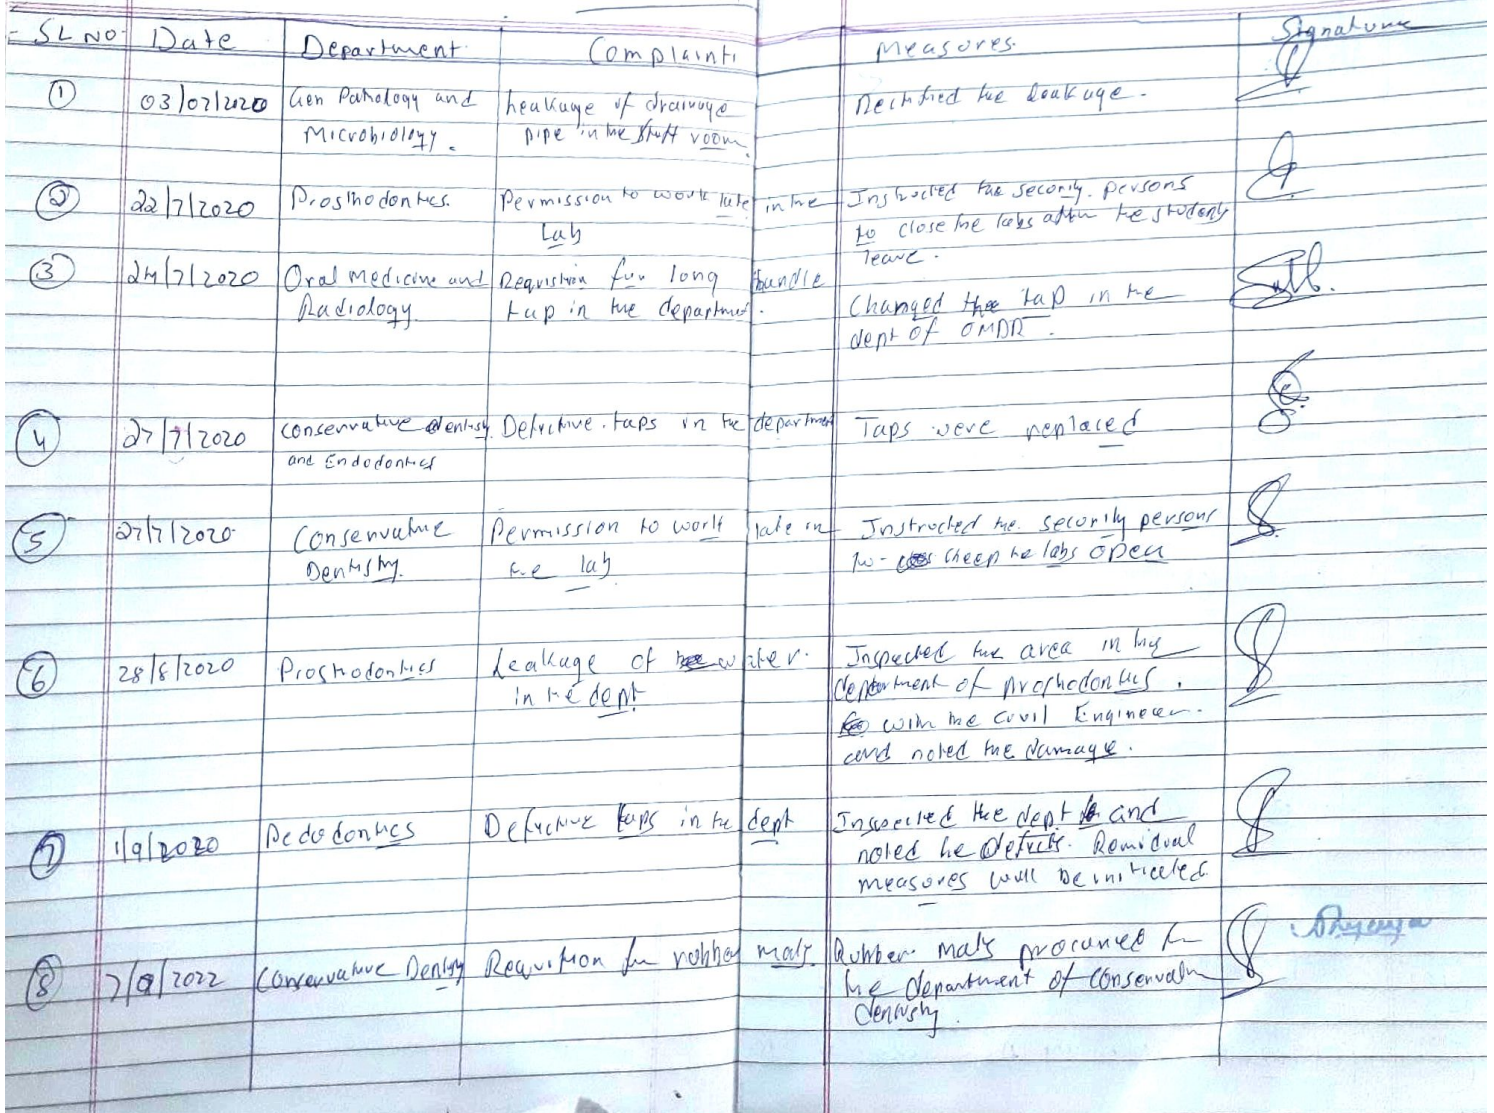 SL NO. Date Department Complaint Measures. Signature
① 03/07/2020 Gen Pathology and Leakage of drainage Rectified the leakage.
Microbiology. pipe in the staff room.
② 22/7/2020 Prosthodontics. Permission to work late in the Instructed the security persons
Lab to close the labs after the students
leave.
③ 24/7/2020 Oral Medicine and Requisition for long handle
Radiology tap in the department. Changed the tap in the
dept of OMDR.
④ 27/7/2020 Conservative dentistry Defective taps in the department Taps were replaced
and Endodontics
⑤ 27/7/2020 Conservative Permission to work late in Instructed the security persons
Dentistry. the lab to keep the labs open
⑥ 28/8/2020 Prosthodontics Leakage of water. Inspected the area in the
in the dept department of prosthodontics.
with the civil Engineer.
and noted the damage.
⑦ 1/9/2020 Pedodontics Defective taps in the dept Inspected the dept and
noted the defects. Remidual
measures will be initiated.
⑧ 7/9/2022 Conservative Dentistry Requisition for rubber mats. Rubber mats procured for
the department of conservative
dentistry.